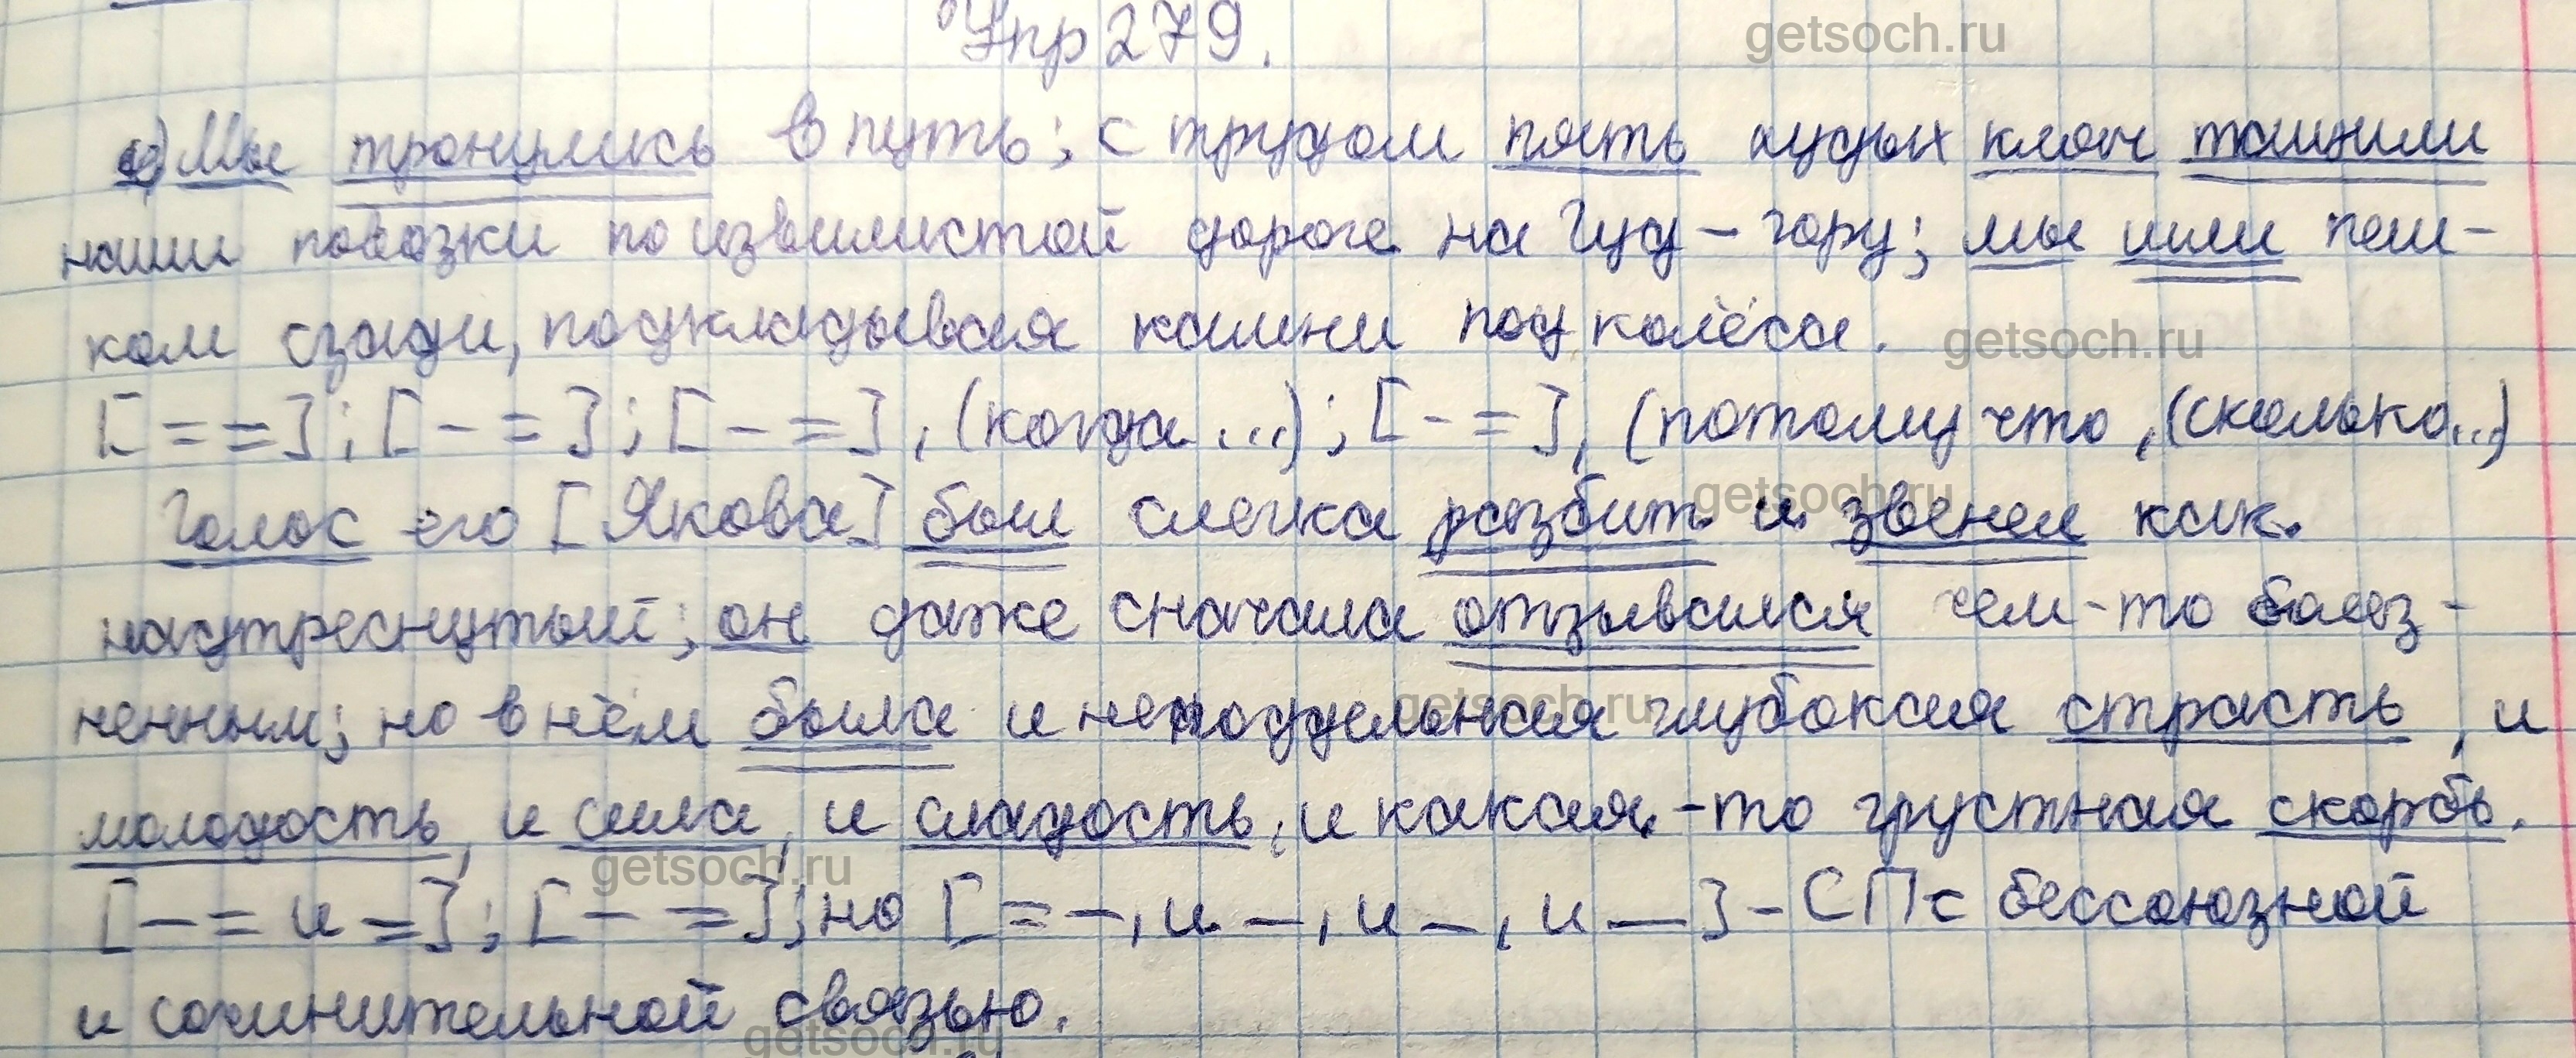 Упр 279.
getsoch.ru
а) Мы тронулись в путь; с трудом пять худых кляч тащили
наши повозки по извилистой дороге на Гуд-гору; мы шли пеш-
ком сзади, подкладывая камни под колёса.
getsoch.ru
[= =]; [- =]; [- =], (когда...); [- =], (потому что, (сколько...)
getsoch.ru
Голос его [Якова] был слегка разбит и звенел как
надтреснутый; он даже сначала отзывался чем-то болез-
ненным; но в нём была и неподдельная глубокая страсть, и
getsoch.ru
молодость, и сила, и сладость, и какая-то грустная скорбь.
getsoch.ru
[- = и =]; [- =]; но [= -, и -, и -, и -] - СП с бессоюзной
и сочинительной связью.
getsoch.ru